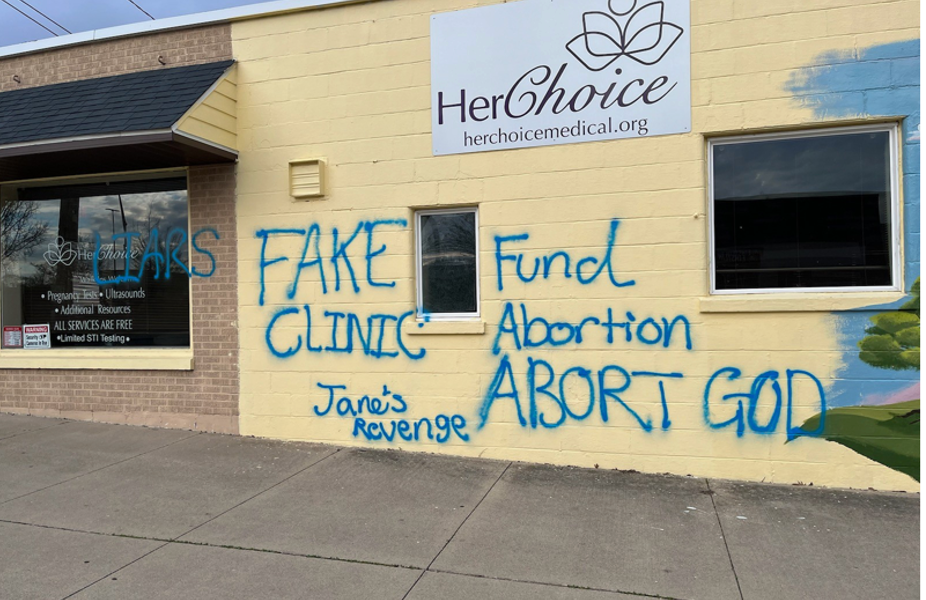 HerChoice
herchoicemedical.org
HerChoice
LIARS
• Pregnancy Tests • Ultrasounds
• Additional Resources
ALL SERVICES ARE FREE
•Limited STI Testing•
WARNING
FAKE
CLINIC
Jane's
Revenge
Fund
Abortion
ABORT GOD